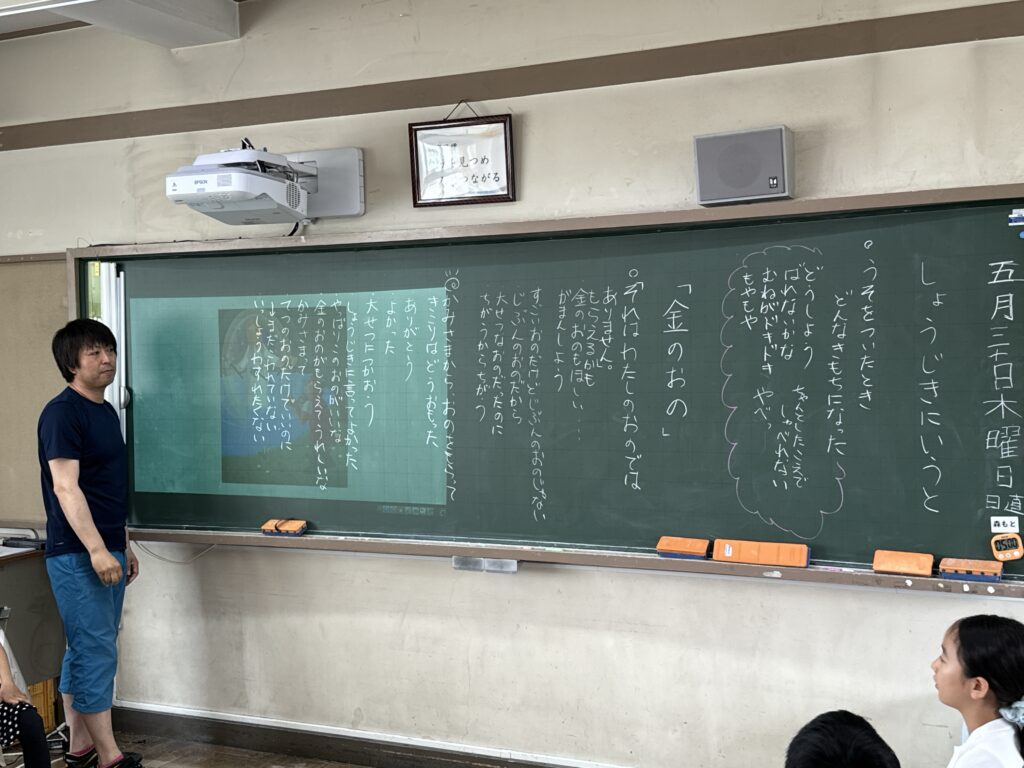 五月三十日木曜日
日直
森もと
しょうじきにいうと
。うそをついたとき
どんなきもちになった
どうしよう
ばれないかな
むねがドキドキ
もやもや
ちゃんとしたこえで
しゃべれない
やべっ
「金のおの」
。それはわたしのおのでは
ありません。
もらえるかも
金のおのもほしい
がまんしよう…
すごいおのだけどじぶんのおのじゃない
じぶんのおのだから
大せつなおのだったのに
ちがうからちがう
かみさまから おのをもらって
きこりはどうおもった
ありがとう
よかった
大せつにつかおう
しょうじきに言ってよかった
やっぱり
金のおのがもらえてうれしいな
かみさまって
を見つめ
つながる
EPSON